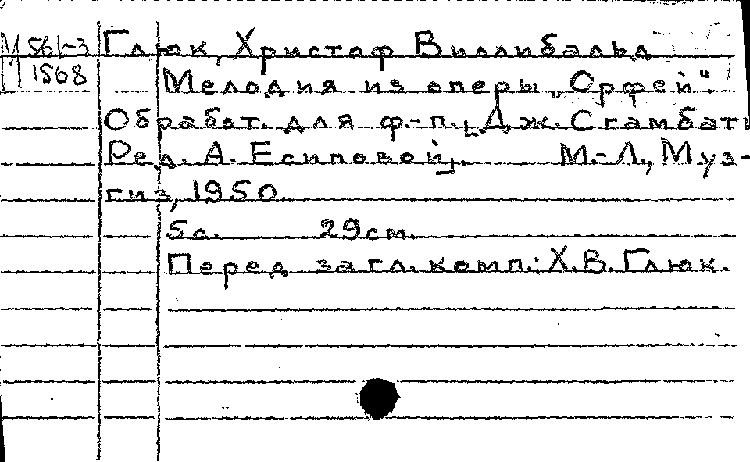 М 561-3 Глюк, Христоф Виллибальд
М 1508 Мелодия из оперы „Орфей".
Обработ. для ф.-п., [Дж. Сгамбати
Ред. А. Есиповой]. М.-Л., Муз-
гиз, 1950
5с. 29см.
Перед загл. комп.: Х.В. Глюк.